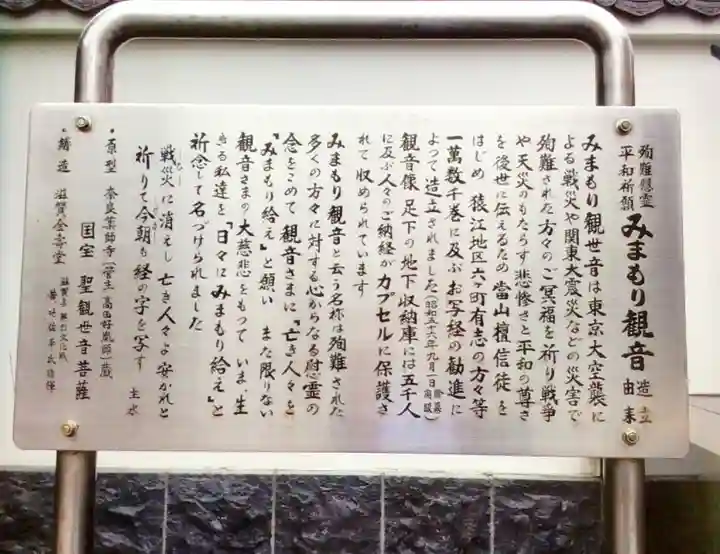 殉難慰霊
平和祈願
みまもり観音
造立
由来
みまもり観世音は東京大空襲に
よる戦災や関東大震災などの災害で
殉難された方々のご冥福を祈り戦争
や天災のもたらす悲惨さと平和の尊さ
を後世に伝えるため當山檀信徒を
はじめ 猿江地区六ヶ町有志の方々等
一萬数千巻に及ぶお写経の勧進に
よって造立されました(昭和五十六年九月一日除幕開眼)
観音像足下の地下収納庫には五千人
に及ぶ人々のご納経がカプセルに保護さ
れて収められています
みまもり観音と云う名称は殉難された
多くの方々に対する心からなる慰霊の
念をこめて観音さまに『亡き人々を
『みまもり給え』と願い また限りない
観音さまの大慈悲をもって いま、生
きる私達を『日々にみまもり給え』と
祈念して名づけられました
戦災に消えし亡き人々よ安かれと
祈りて今朝も経の字を写す
主水
・原型 奈良薬師寺(管主 高田好胤師)蔵
国宝 聖観世音菩薩
・鋳造 滋賀金壽堂
滋賀県無形文化財